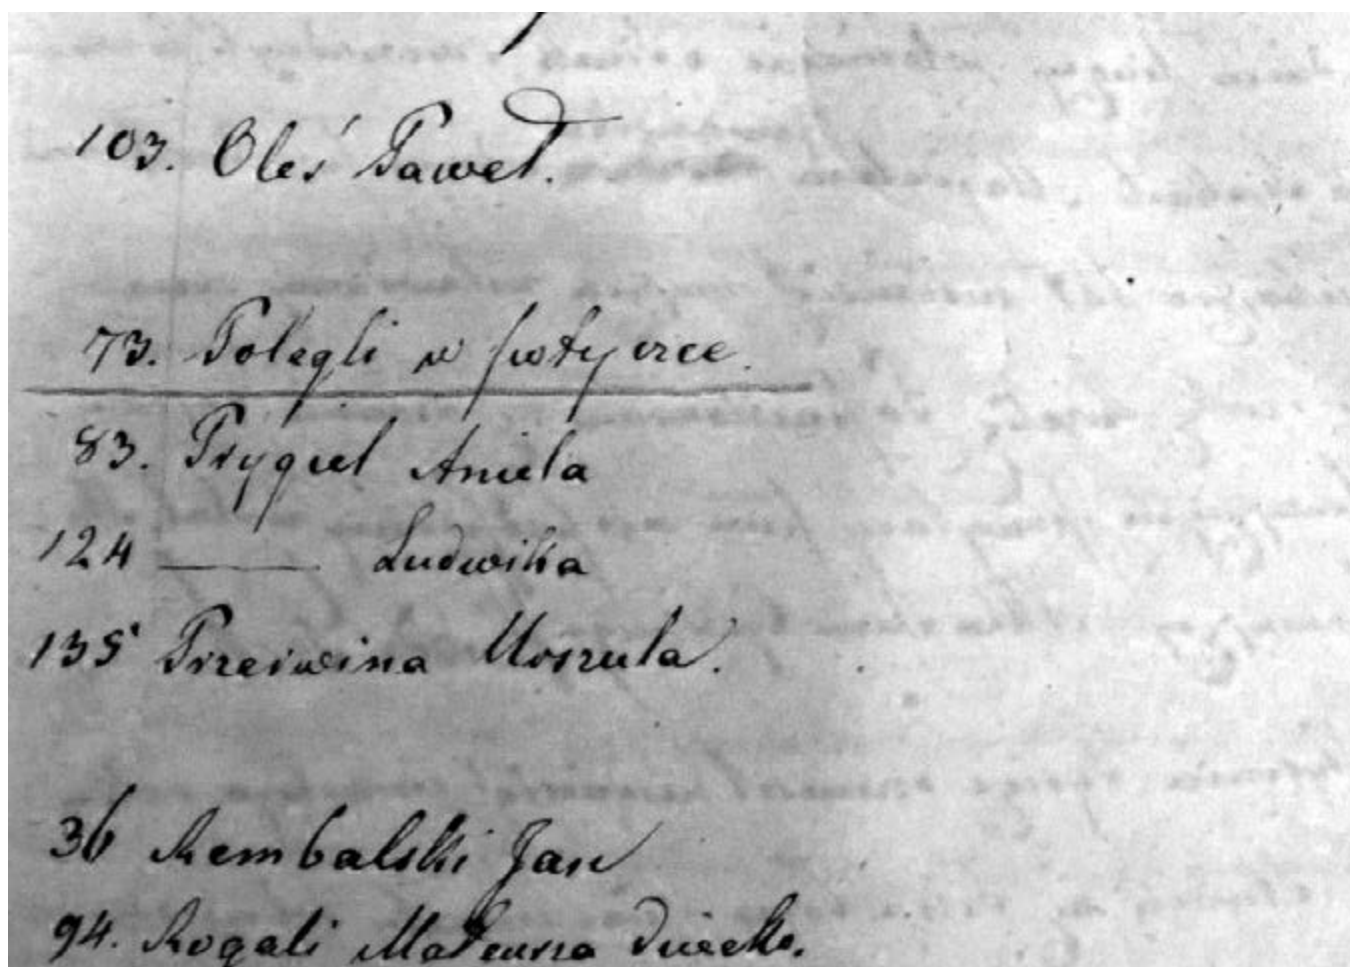 103. Oleś Paweł.
73. Polegli w potyczce.
83. Prygiel Aniela
124 ——— Ludwika
135 Urszula.
36 Rembalski Jan
94. Rogali Mateusza dziecko.